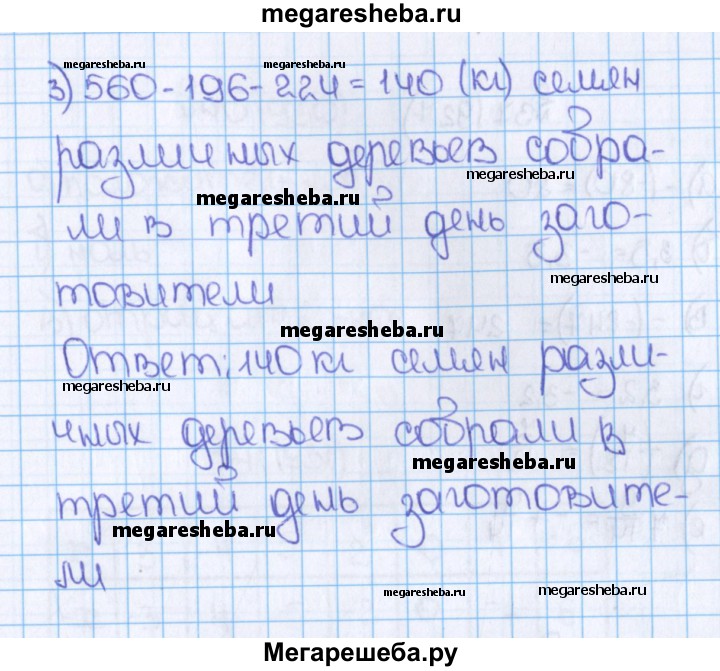 megaresheba.ru
megaresheba.ru megaresheba.ru
3) 560-196-224=140 (кг) семян
различных деревьев собра-
megaresheba.ru
megaresheba.ru
ли в третий день заго-
megaresheba.ru
товители
megaresheba.ru
Ответ: 140 кг семян разли-
megaresheba.ru
чных деревьев собрали в
megaresheba.ru
третий день заготовите-
megaresheba.ru
ли
megaresheba.ru
Мегарешеба.ру